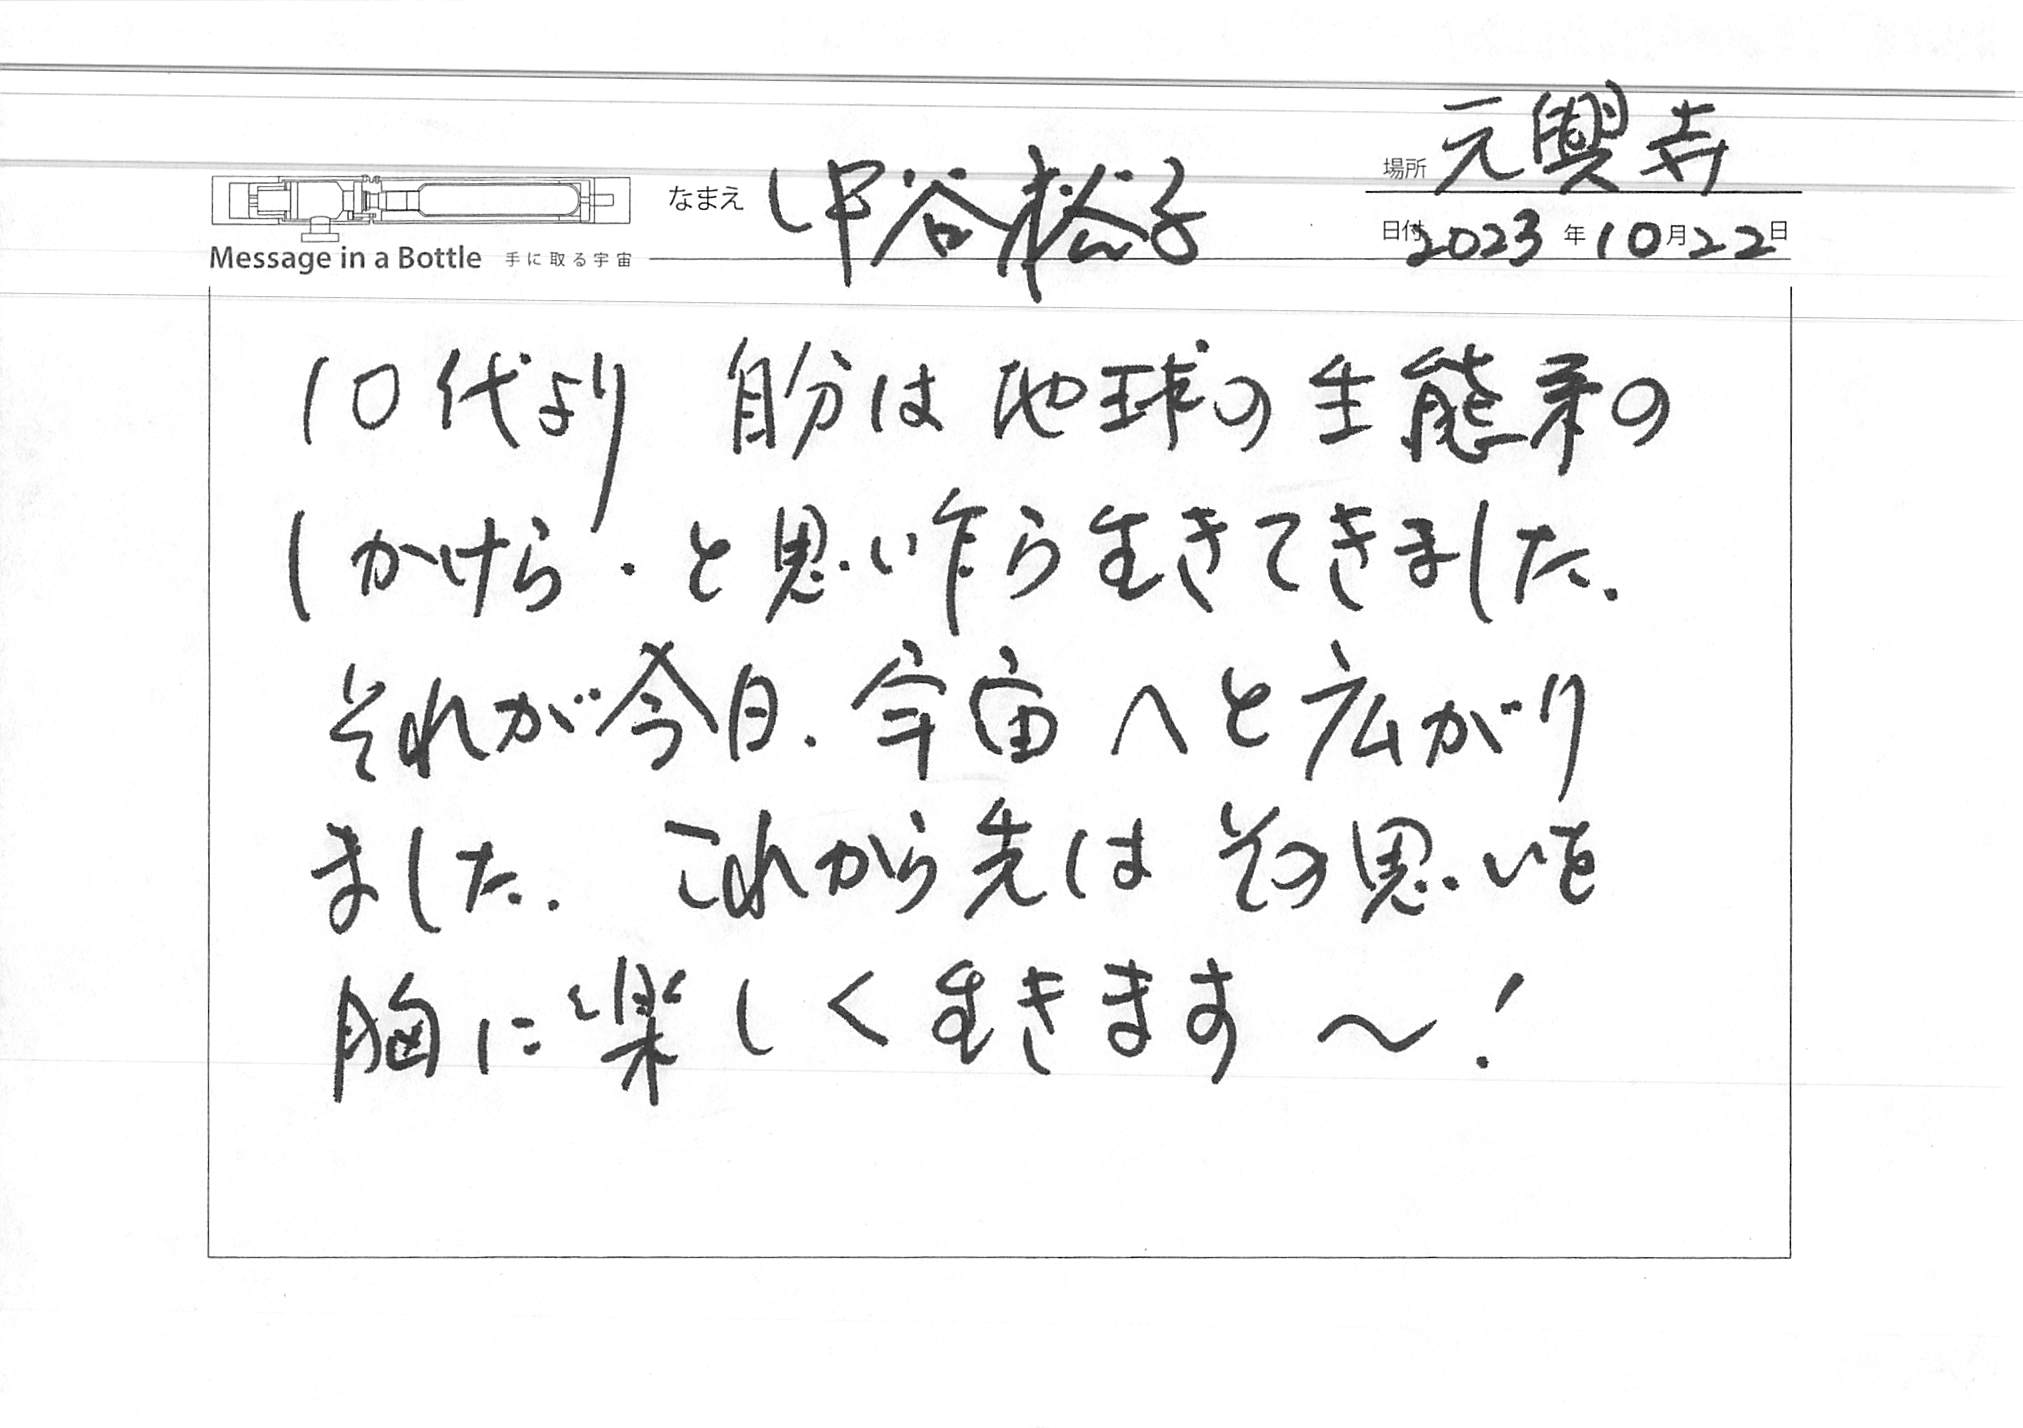 場所 元興寺
なまえ 中谷松子
日付 2023年10月22日
Message in a Bottle 手に取る宇宙
10代より 自分は地球の生態系の
1かけら．と思い乍ら生きてきました．
それが今日．宇宙へと広がり
ました． これから先は その思いを
胸に楽しく生きます〜！